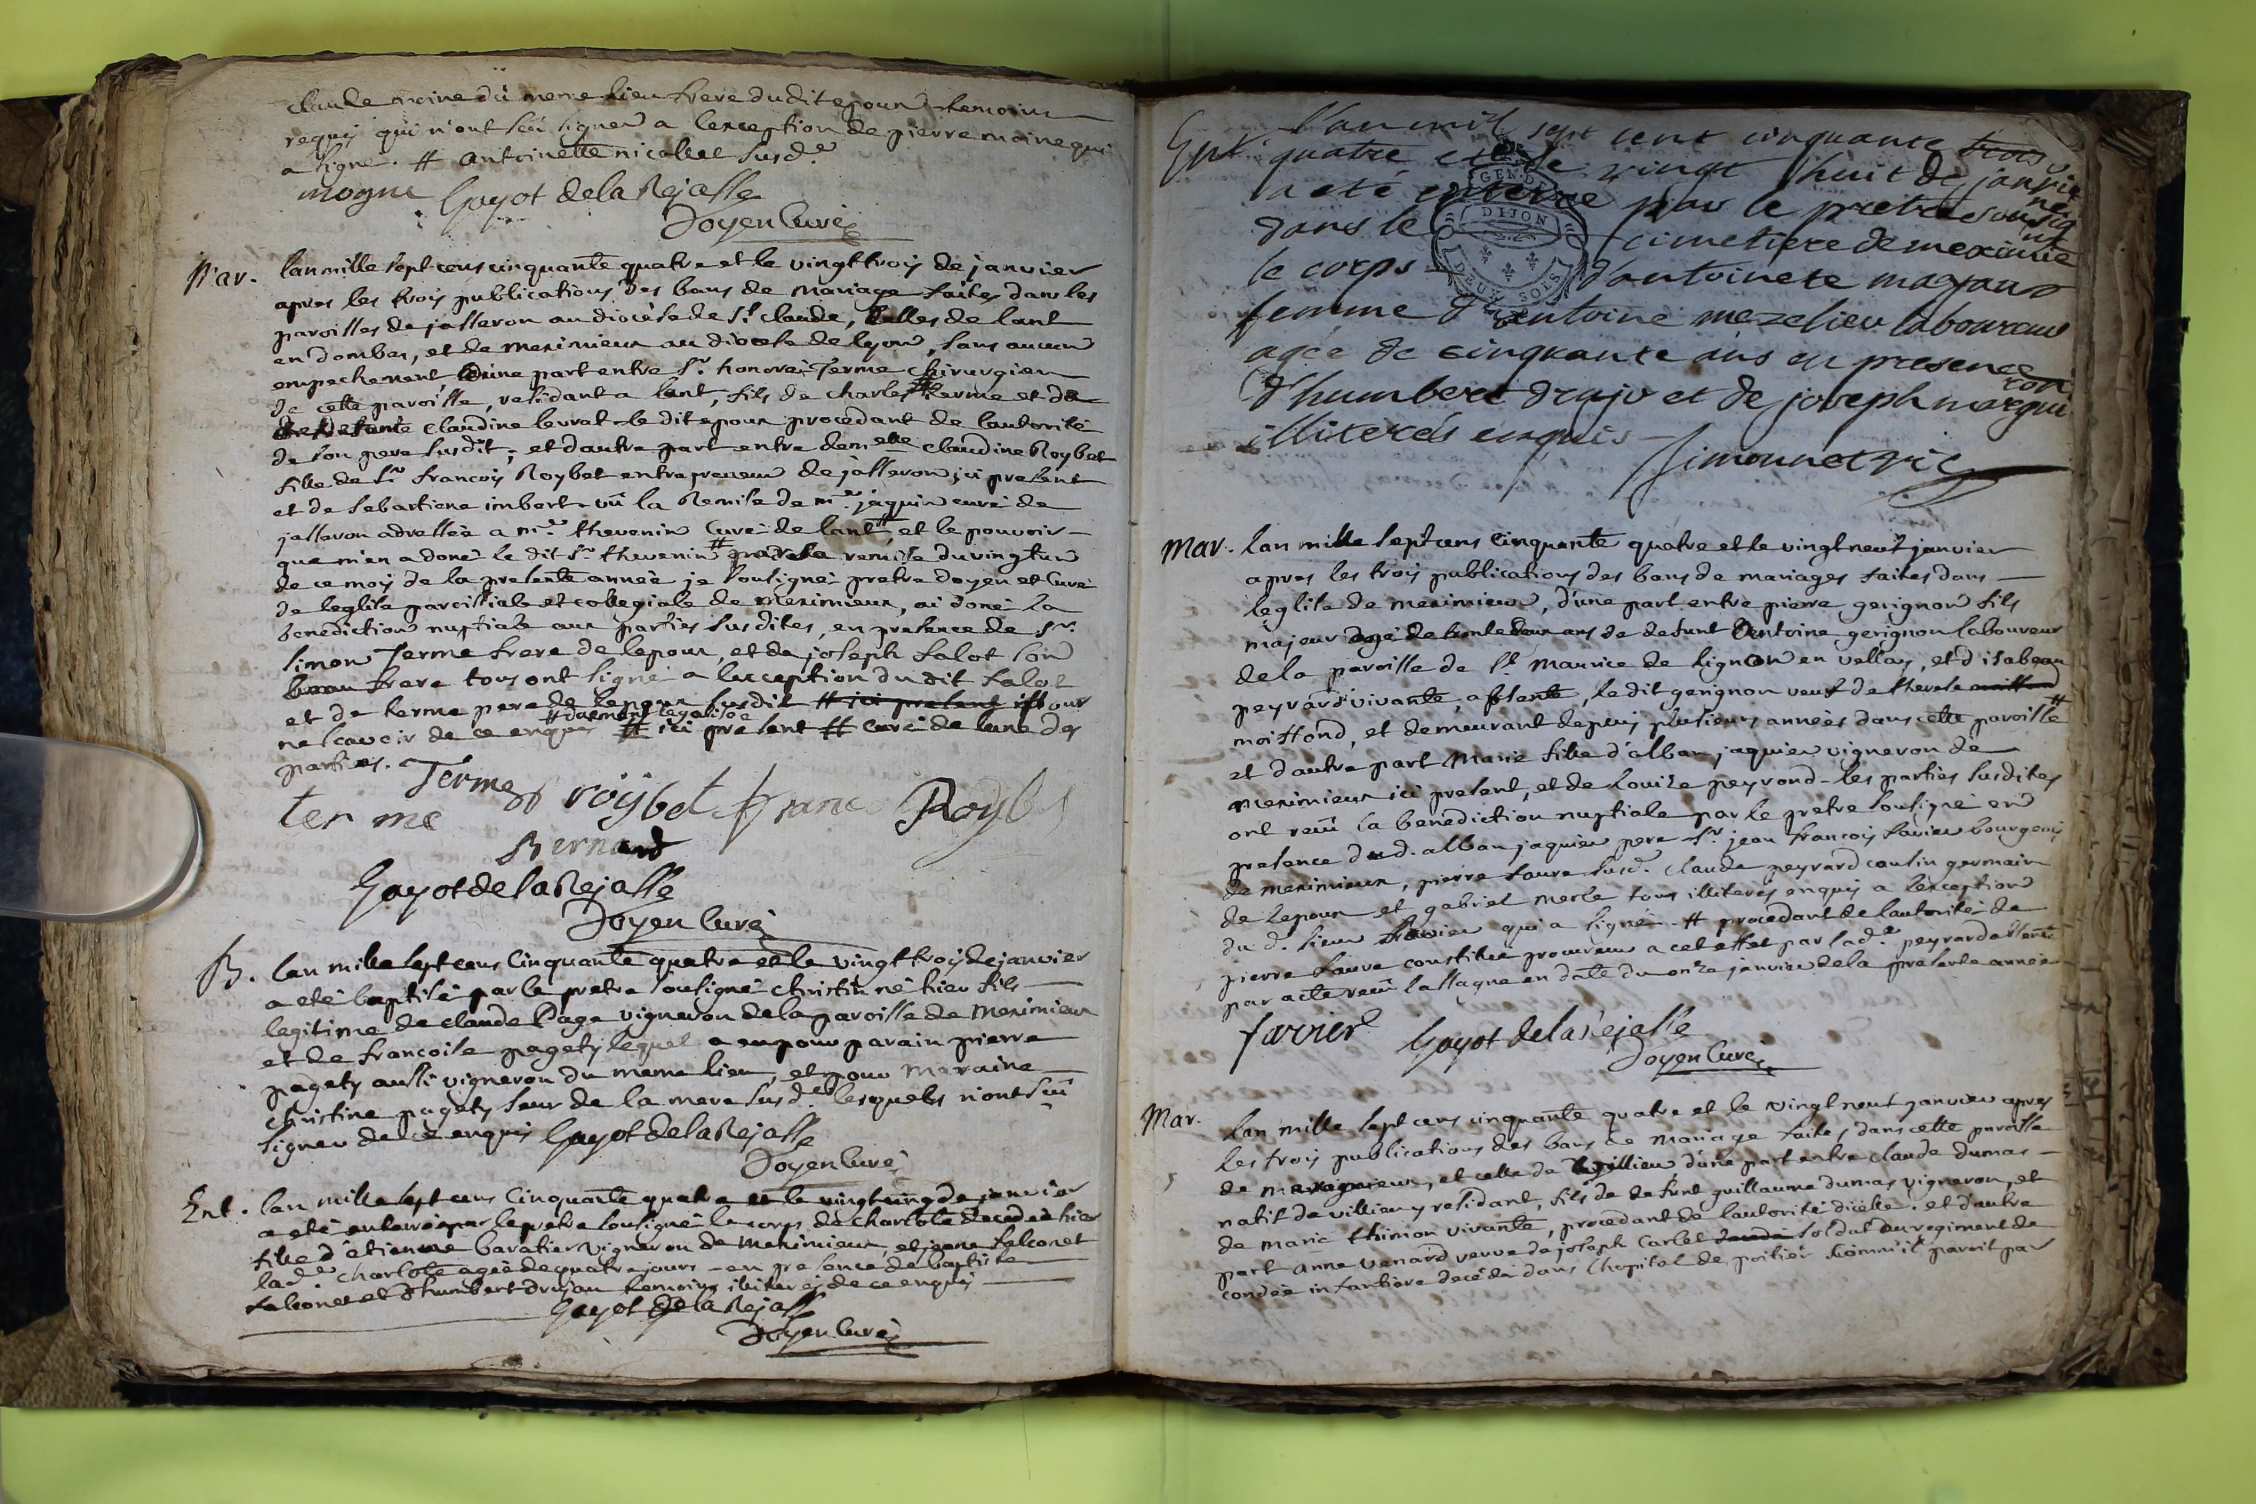 claude moine du meme lieu frere dudit epoux temoins
requis qui n'ont sceu signer a l'exception de pierre moine qui
a signé. # antoinette nicollet susd.e
mogne Goyot de la Rejasse
Doyen Curé
Mar. lan mille sept cens cinquante quatre et le vingt trois de janvier
apres les trois publications des bans de mariage faites dans les
paroisses de jasseron au diocese de st. claude, celles de lant
en dombes, et de meximieux au diocese de lyon, sans aucun
empechement, d'une part entre sr. honoré Terme chirurgien
de cette paroisse, residant a lent, fils de charles # terme et de
defunte claudine levrat le dit epoux procedant de lautorité
de son pere susdit; et dautre part entre demelle claudine Roybet
fille de sr. francois Roybet entrepreneur de jasseron ici present
et de sebastiene imbert vû la Remise de mre. jaquin curé de
jasseron adressée a mre. thevenin curé de lant, et le pouvoir
que m'en a doné le dit sr. thevenin # par sa remise du vingt un
de ce mois de la presente année je sousigné pretre doyen et curé
de leglise paroissiale et collegiale de meximieux, ai doné la
benediction nuptiale aux parties susdites, en presence de sr.
simon Terme frere de lepoux, et de joseph falot son
beau frere tous ont signé a l'exception du dit falot
et de terme pere de lepoux susdit # ici present # pour
ne scavoir de ce enquis # ici present # curé de lune des
# dument legalisée
parties.
Terme roybet franc Roybet
ter me
Bernard
Goyot de la Rejasse
Doyen Curé
B. lan mille sept cens cinquante quatre et le vingt trois de janvier
a eté baptisé par le pretre sousigné christin né hier fils
legitime de claude Page vigneron de la paroisse de meximieux
et de francoise pagety lequel a eu pour parain pierre
pagety aussi vigneron du meme lieu, et pour maraine
christine pagety seur de la mere susd.e lesquels n'ont sceu
signer de ce enquis Goyot de la Rejasse
Doyen Curé
Ent. lan mille sept cens cinquante quatre et le vingt cinq de janvier
a eté enterré par le pretre sousigné le corps de charlote decedée hier
fille d'etienne baratier vigneron de meximieux, et jeane falconet
lad.e charlote agée de quatre jours en presence de baptiste
falconet et d'humbert drujau temoins iliterés de ce enquis
Goyot de la Rejasse
Doyen Curé
Ent. l'an mil sept cent cinquante trois
quatre et le vingt huit de janvier
a eté enterré par le pretre soussigné
dans le cimetiere de meximieux
GEN. D
DIJON
DEUX SOLS
le corps d'antoinete
femme d'antoine mezelier laboureur
agée de cinquante ans en presence
d'humbert drujo et de joseph
illiterés enquis
Simonnet vic
Mar. lan mille sept cens cinquante quatre et le vingt neuf janvier
apres les trois publications des bans de mariages faites dans
leglise de meximieux, d'une part entre pierre gerignon fils
majeur agé de trente deux ans de defunt antoine gerignon laboureur
de la paroisse de st. maurice de lignon en vellay, et d'isabeau
peyrard vivante, absente, le dit gerignon veuf de therese
moissond, et demeurant depuis plusieurs années dans cette paroisse #
et d'autre part marie fille d'alban jaquier vigneron de
meximieux ici present, et de louize peyrond les parties susdites
ont recu la benediction nuptiale par le pretre sousigné en
presence du d. alban jaquier pere sr. jean francois favier bourgeois
de meximieux, pierre faure susd. claude peyrard cousin germain
de lepoux et gabriel merle tous illiterés enquis a l'exception
du d. sieur favier qui a signé. # procedant de lautorité de
pierre faure constitué procureur a cet effet par lad.e peyrard absente
par acte recu lassagne en date du onze janvier de la presente année
favier Goyot de la Rejasse
Doyen Curé
Mar. lan mille sept cens cinquante quatre et le vingt neuf janvier apres
les trois publications des bans de mariage faites dans cette paroisse
de meximieux, et celle de villieu d'une part entre claude dumas
natif de villieu y residant, fils de defunt guillaume dumas vigneron, et
de marie thimon vivante, procedant de lautorité d'icelle. et d'autre
part anne venard veuve de joseph carlet soldat du regiment de
condée infanterie decedé dans l'hopital de poitier comm'il paroit par